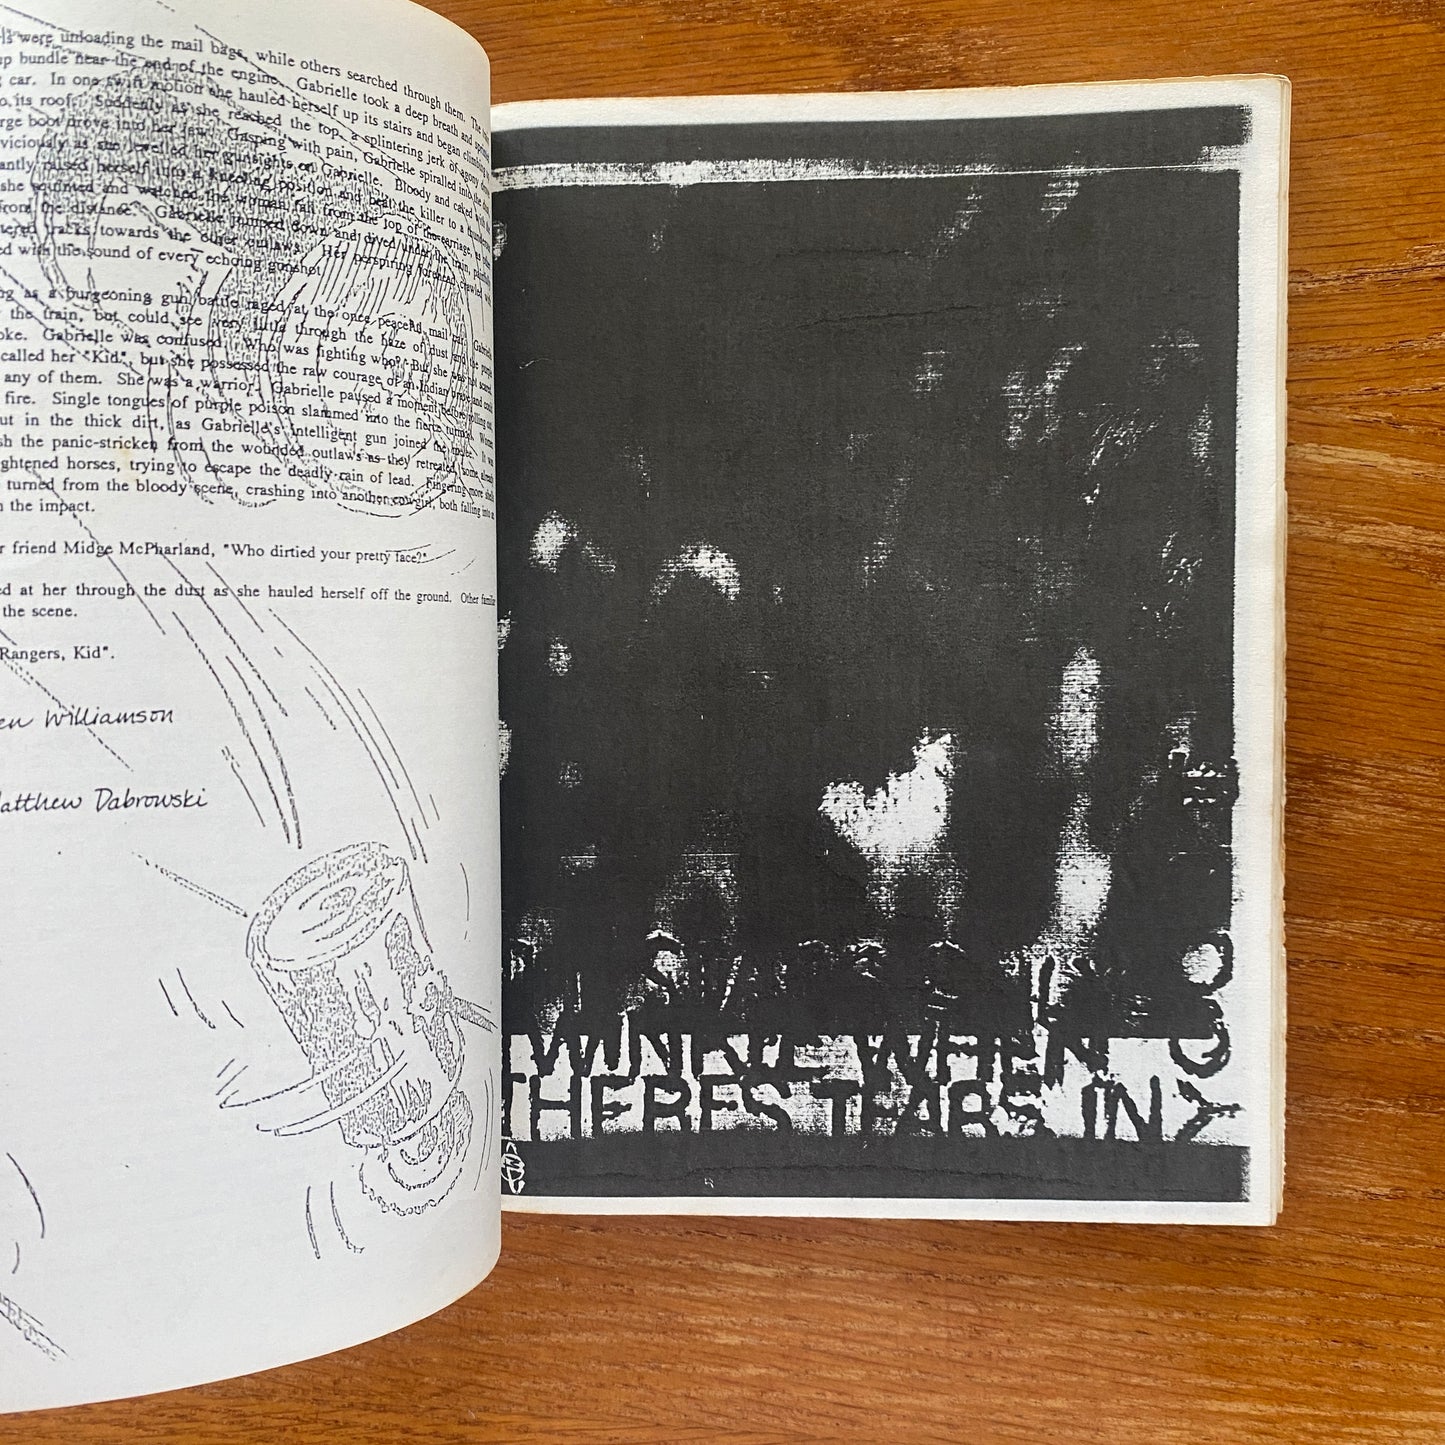 ls were unloading the mail bags, while others searched through them. The
p bundle near the end of the engine. Gabrielle took a deep breath and
g car. In one twift motion she hauled herself up its stairs and began climbing
o its roof. Suddenly as she reached the top, a splintering jerk of agony
rge boot drove into her jaw. Gasping with pain, Gabrielle spiralled into the
viciously as she levelled her gunsights on Gabrielle. Bloody and caked with
antly raised herself into a kneeling position and beat the killer to a
she squinted and watched the woman fall from the top of the carriage,
from the distance. Gabrielle jumped down and dived under the train,
tered tracks towards the other outlaws. Her perspiring forehead crawled with
ed with the sound of every echoing gunshot
ng as a burgeoning gun battle raged at the once peaceful mail car. Gabrielle
the train, but could see very little through the haze of dust and the purple
oke. Gabrielle was confused. Who was fighting who? But she was not scared
called her "Kid", but she possessed the raw courage of an Indian brave and could
any of them. She was a warrior. Gabrielle paused a moment before rolling out,
fire. Single tongues of purple poison slammed into the fierce turmoil. Women
ut in the thick dirt, as Gabrielle's intelligent gun joined the melee. It was
sh the panic-stricken from the wounded outlaws as they retreated, some already
ghtened horses, trying to escape the deadly rain of lead. Fingering more shells
turned from the bloody scene, crashing into another cowgirl, both falling into a
n the impact.
r friend Midge McPharland, "Who dirtied your pretty face?"
ed at her through the dust as she hauled herself off the ground. Other familiar
the scene.
Rangers, Kid".
en Williamson
Matthew Dabrowski
TWINKLE WHEN
THERES TEARS IN